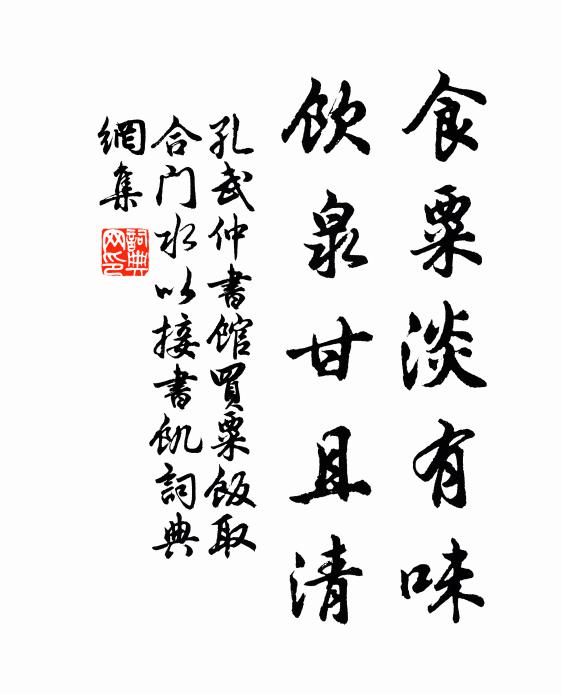 食粟淡有味
飲泉甘且清
孔武仲書館買粟飯取
合門水以接書飢詞典
網集
詞典
网印